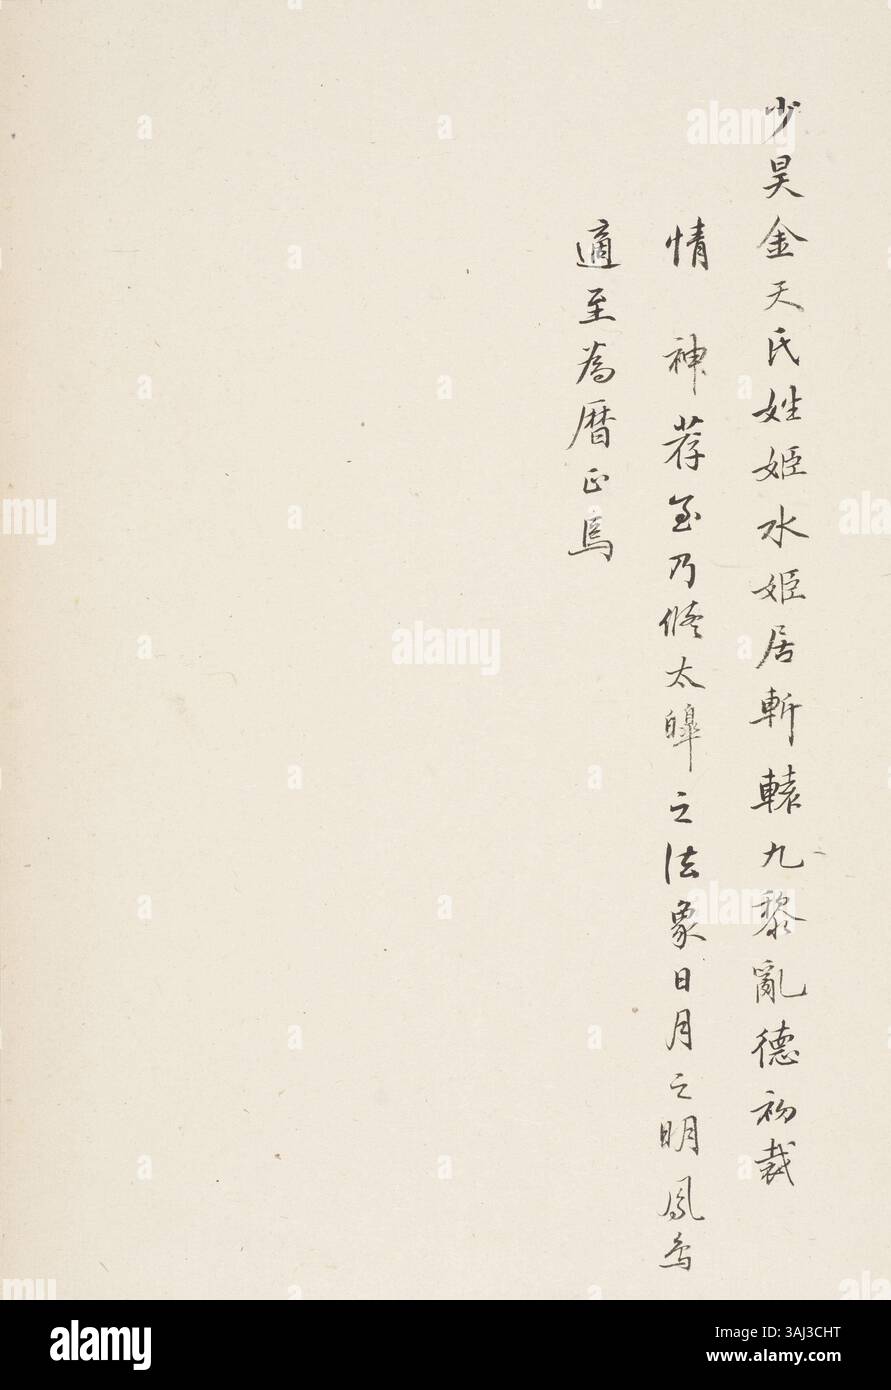 少昊金天氏姓姬水姬居斬轅九黎亂德初裁
情 神荐至乃脩太皞之法象日月之明鳳鳥
適至為曆正焉
alamy
Image ID: 3AJ3CHT
www.alamy.com